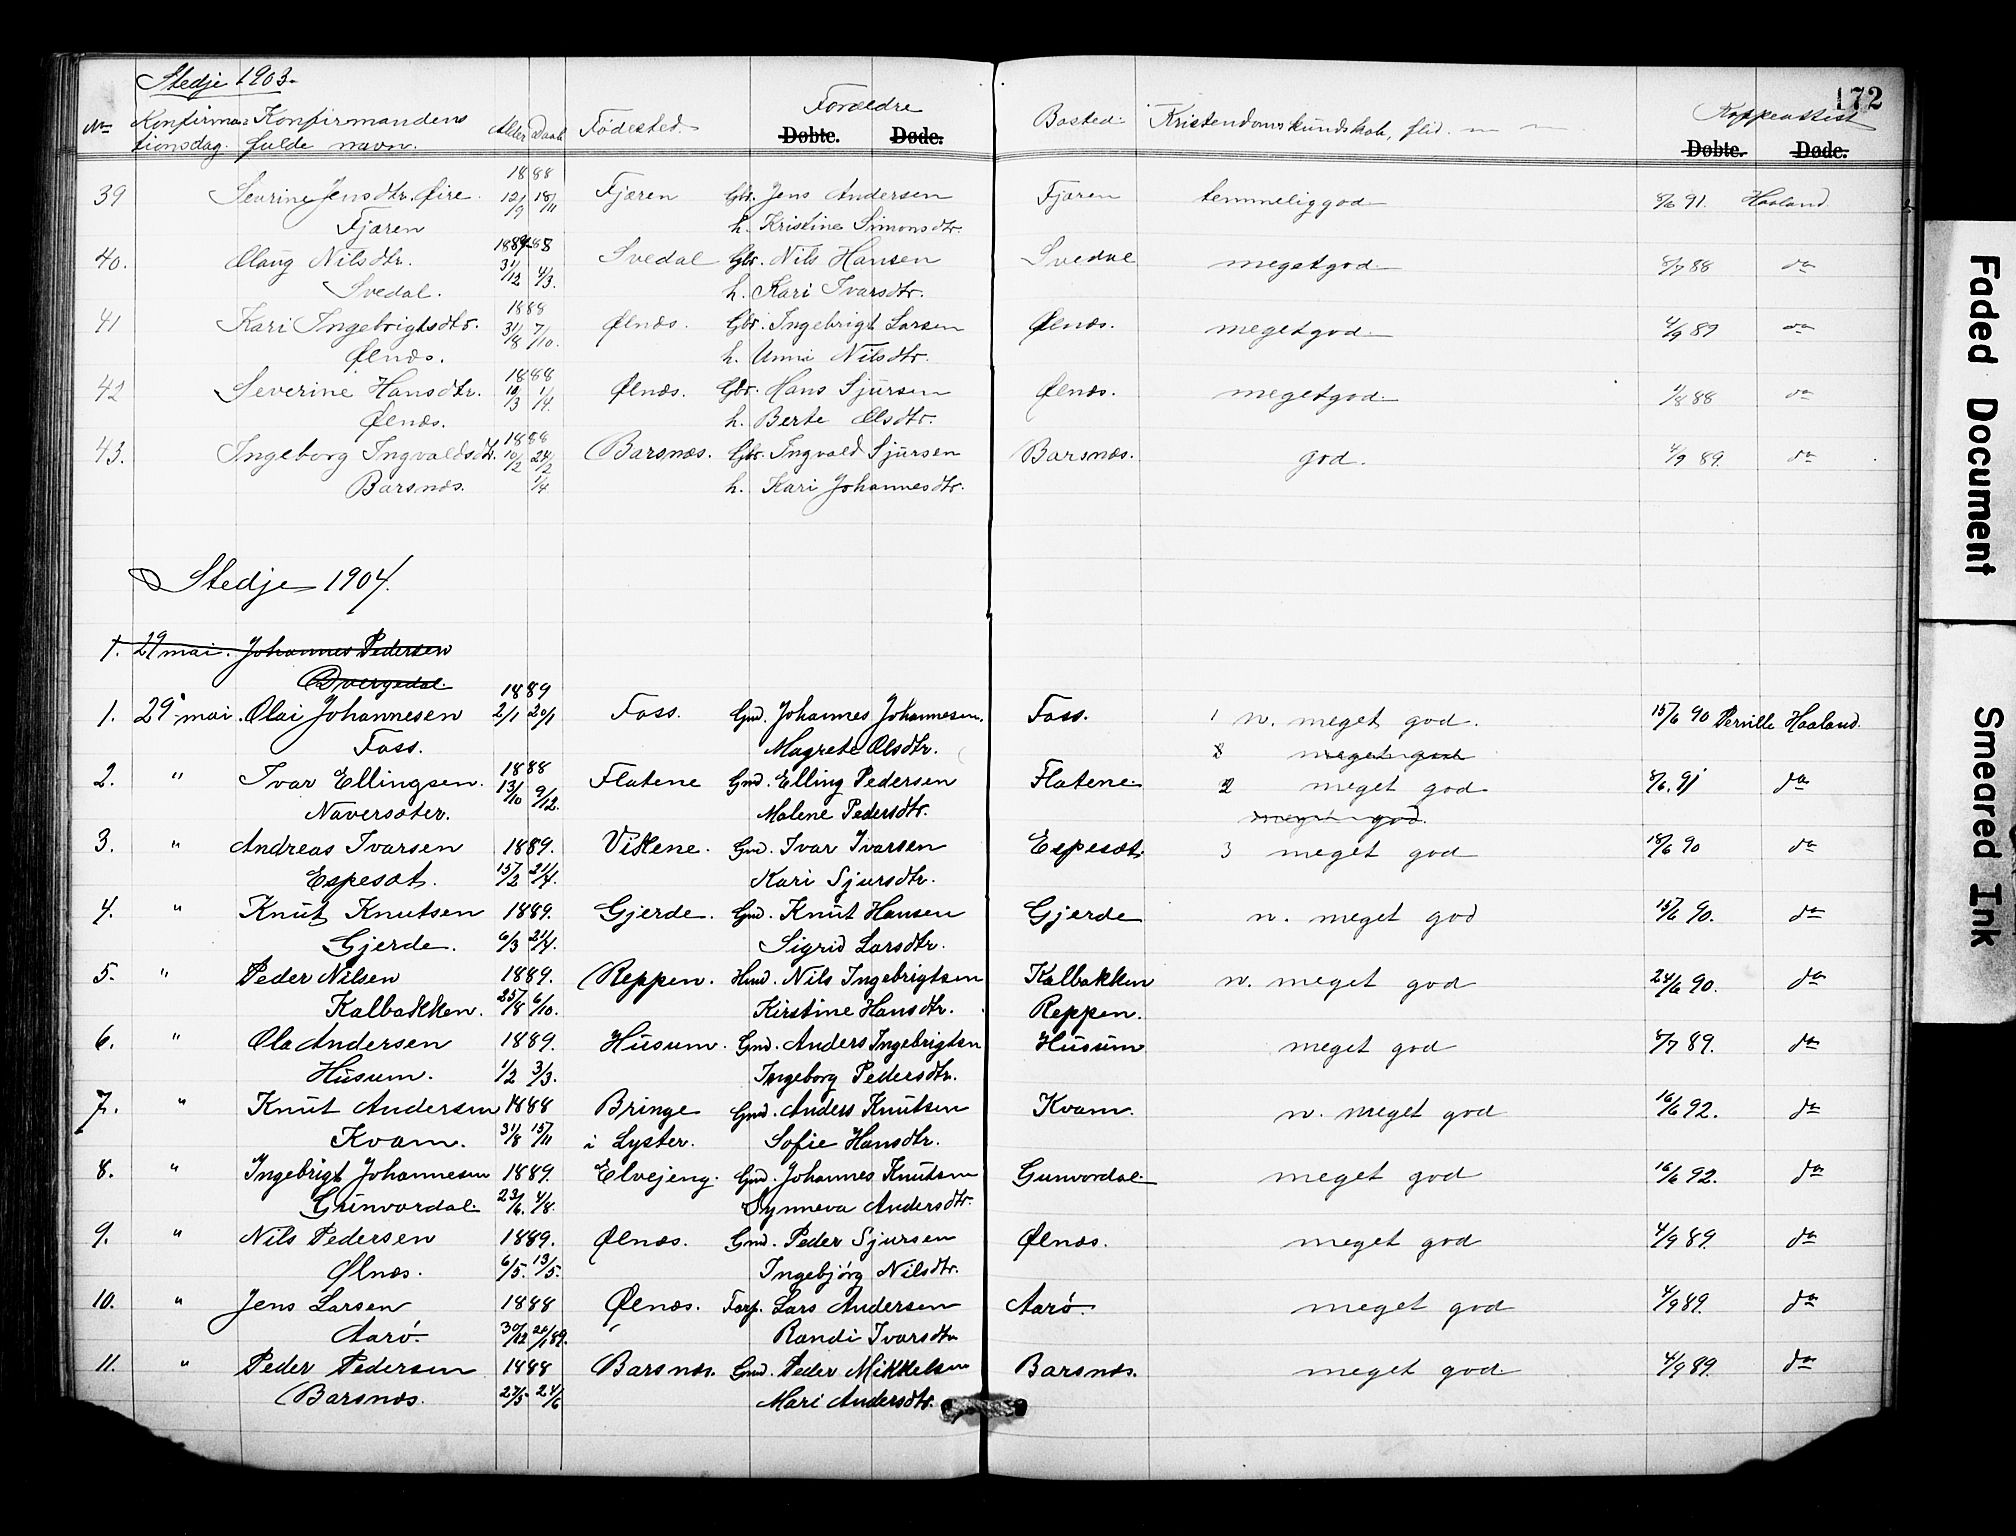 Stedje 1903.
172
No Konfirma- Konfirmandens Alder Daab Fødested. Forældre Bosted. Kristendomskundskab, flid. Koppeattest
tionsdag. fulde navn. Døbte. Døde. Døbte. Døde.
1888
39 Sevrine Jensdtr. Øire. 12/9 18/11 Fjæren Gbr. Jens Andersen Fjæren temmelig god 8/6 91. Haaland
Fjæren h. Kristine Simonsdtr.
1887 88
40. Olaug Nilsdtr. 31/12 4/3. Svedal Gbr. Nils Hansen Svedal meget god 8/7 88 do
Svedal. h. Kari Ivarsdtr.
1888
41 Kari Ingebrigtsdtr. 31/8 7/10. Ølnæs. Gbr. Ingebrigt Larsen Ølnæs. meget god 4/9 89 do
Ølnæs. h. Unni Nilsdtr.
1888
42 Severine Hansdtr. 10/3 1/4. Ølnæs. Gbr. Hans Sjursen Ølnæs. meget god 1/8 88 do
Ølnæs. h. Berte Olsdtr.
1888
43. Ingeborg Ingvaldsdtr. 10/2 24/2 Barsnæs. Gbr. Ingvald Sjursen Barsnæs. god. 4/9 89. do
Barsnæs. 1/4. h. Kari Johannesdtr.
Stedje 1904.
1. 29 mai. Johannes Pedersen
Dvergedal.
1889
1. 29 mai. Olai Johannesen 2/1 20/1 Foss. Gmd. Johannes Johannesen. Foss. 1 n. meget god. 15/6 90 Pernille Haaland.
Foss. Magrete Olsdtr. 2 meget god
1888
2. " Ivar Ellingsen. 13/10 9/12. Flatene Gmd. Elling Pedersen Flatene 2 meget god 8/6. 91 do
Naversæter. Malene Pedersdtr. meget god.
3. " Andreas Ivarsen 1889. Vikene. Gmd. Ivar Ivarsen Espesæt. 3 meget god 18/6 90 do
Espesæt. 15/2 21/4. Kari Sjursdtr.
4. " Knut Knutsen 1889. Gjerde. Gmd. Knut Hansen Gjerde n. meget god 15/6 90. do
Gjerde. 6/3 21/4. Sigrid Larsdtr.
5. " Peder Nilsen 1889. Reppen. Hmd. Nils Ingebrigtsen Kalbakken n. meget god 24/6 90. do
Kalbakken. 25/8 6/10. Kirstine Hansdtr. Reppen.
6. " Ola Andersen 1889. Husum. Gmd. Anders Ingebrigtsn Husum meget god 8/7 89. do
Husum. 1/2 3/3. Ingeborg Pedersdtr.
7. " Knut Andersen 1888 Bringe Gmd. Anders Knutsen Kvam. n. meget god 16/6 92. do
Kvam. 31/8 15/11 i Lyster. Sofie Hansdtr.
8. " Ingebrigt Johannesen 1889. Elvejeng. Gmd. Johannes Knutsen Gunvordal. meget god 16/6 92. do
Gunvordal. 23/6. 4/8. Synneva Andersdtr.
9. " Nils Pedersen 1889. Ølnæs. Gmd. Peder Sjursen Ølnæs. meget god 4/9 89. do
Ølnæs. 6/5. 13/5. Ingebjörg Nilsdtr.
10. " Jens Larsen 1888 Ølnæs. Forp. Lars Andersen Aarø. meget god 4/9 89. do
Aarø. 30/12 20/1 89. Randi Ivarsdtr
11. " Peder Pedersen 1888 Barsnæs. Gmd. Peder Mikkelsen Barsnæs. meget god. 4/9 89. do
Barsnæs. 27/5. 24/6 Mari Andersdtr.
Faded Document
Smeared Ink